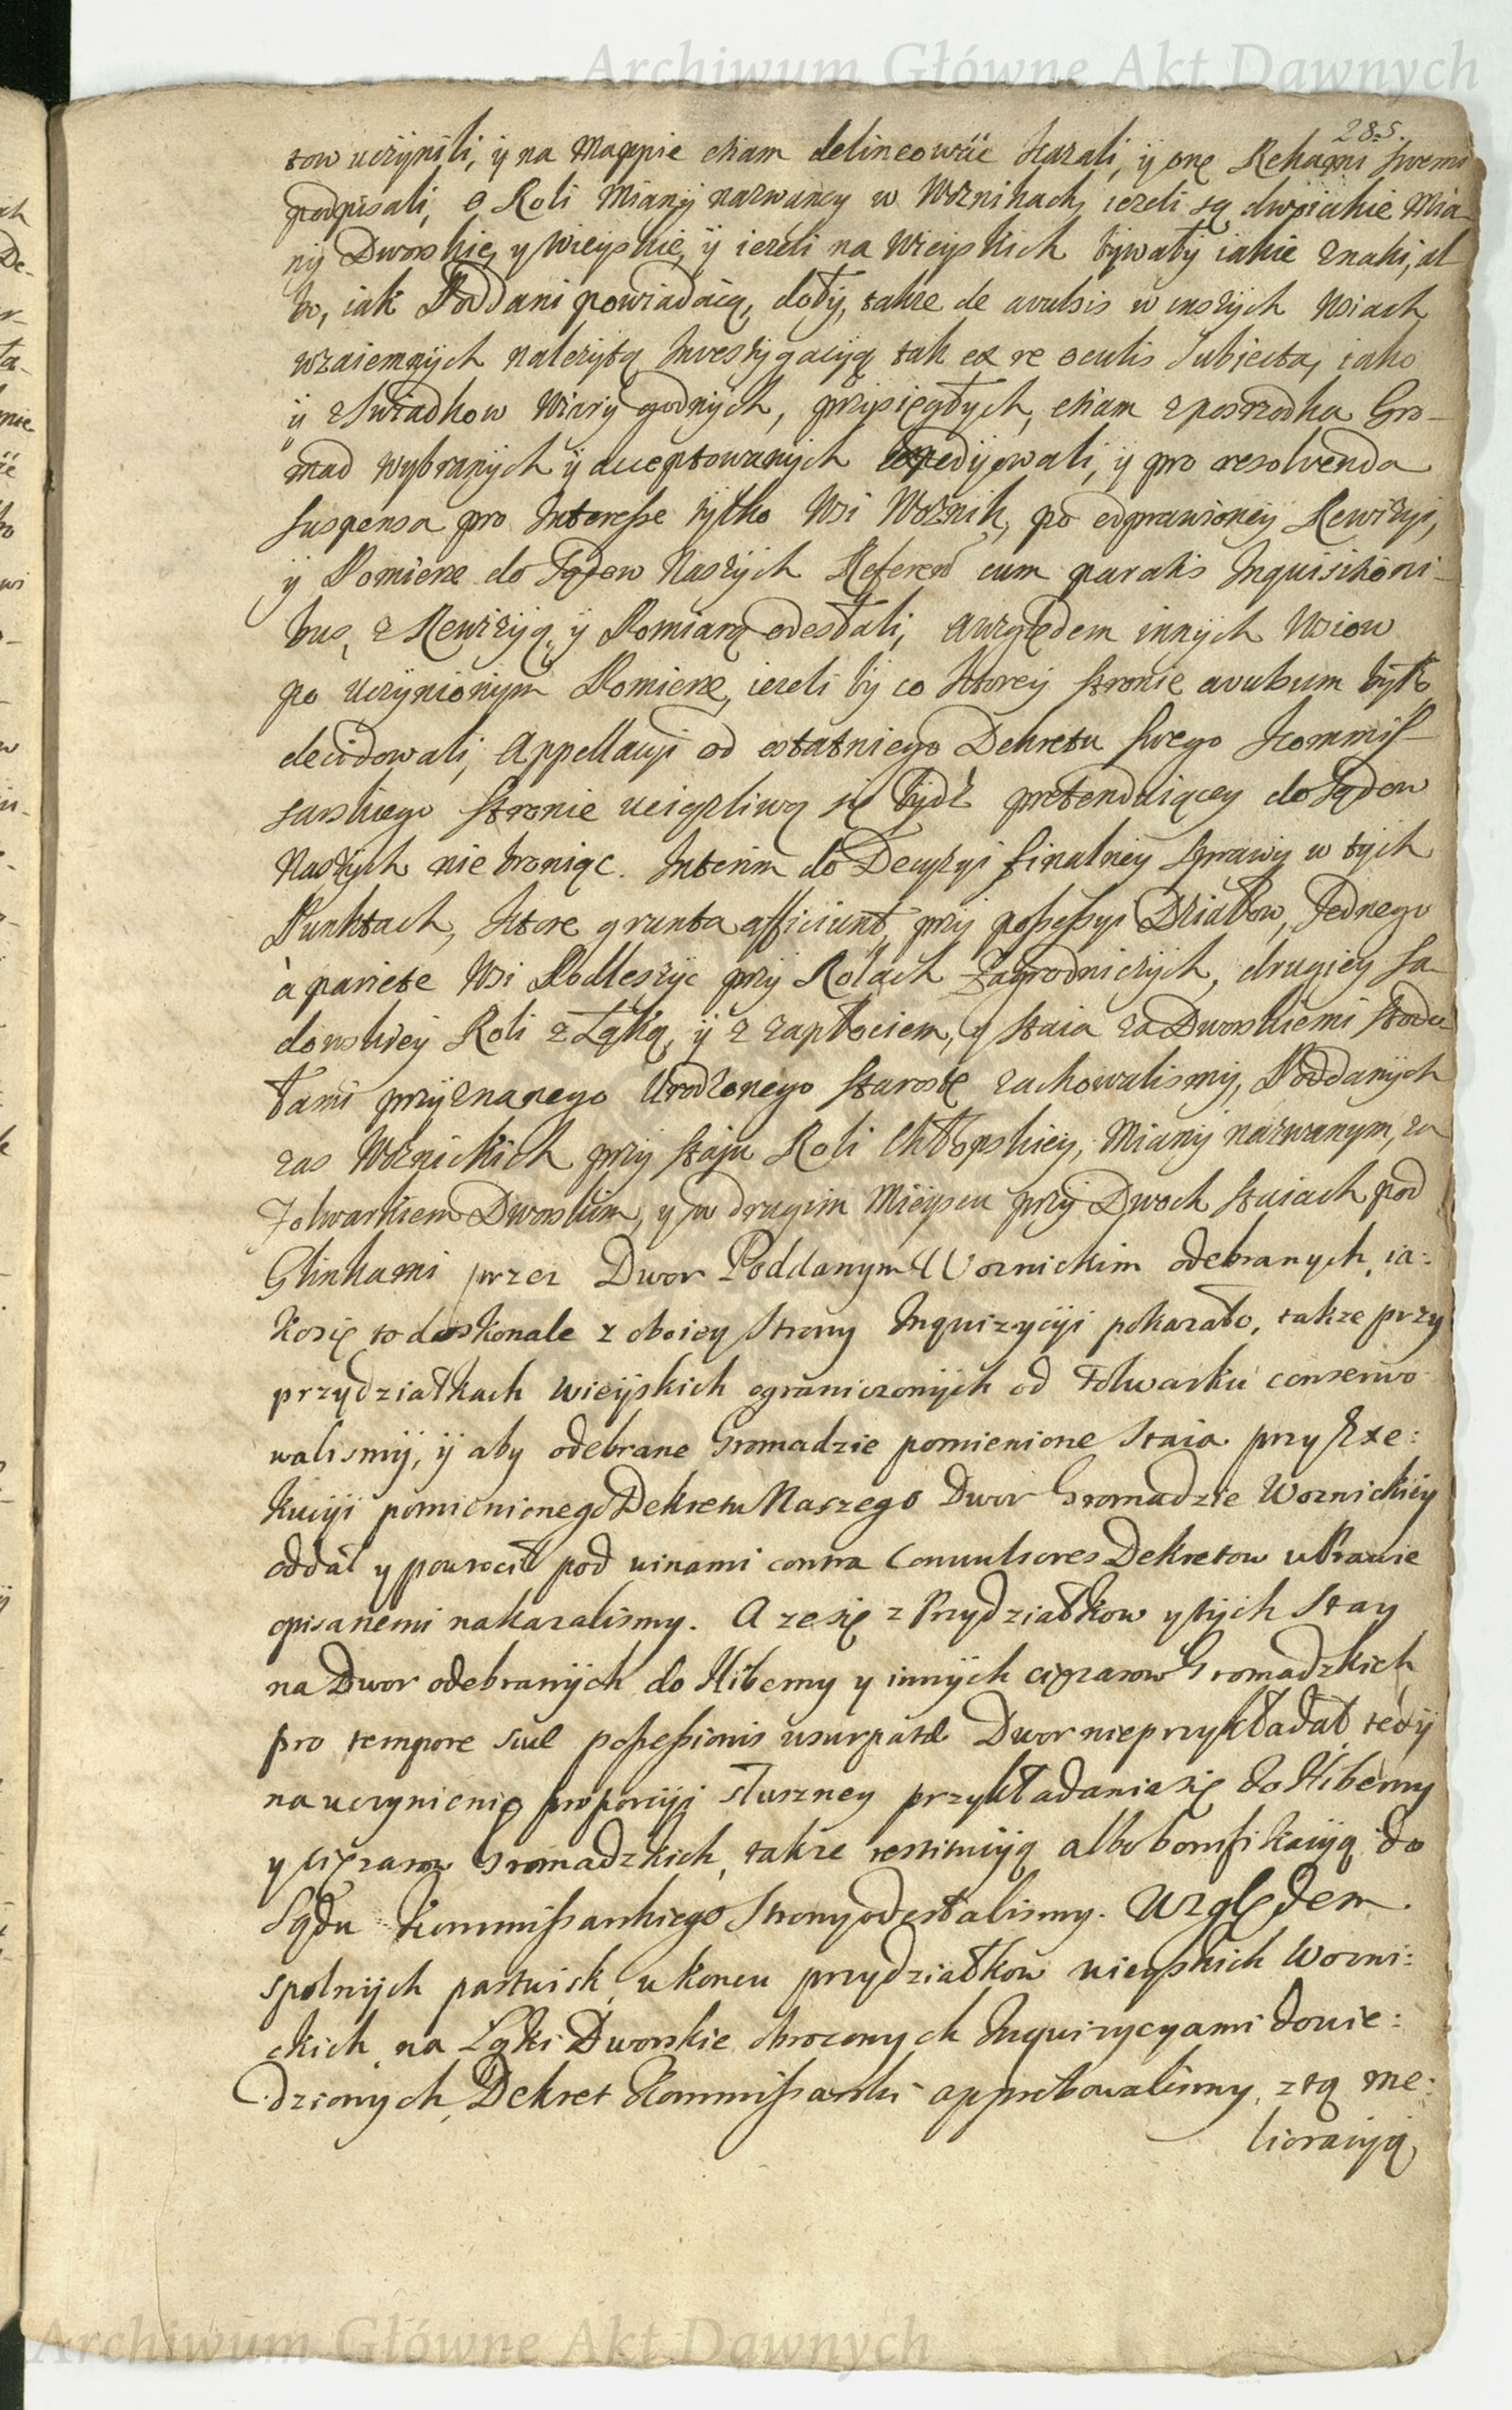 Archiwum Główne Akt Dawnych
285.
tow uczynili, ÿ na Mappie etiam delineowäć kazali, ÿ onę Rękami swemi
podpisali, o Roli Mianÿ nazwaney w Woznikach, iezeli są dwoiakie Mia-
nÿ Dworskie, y Wieyskie, ÿ iezeli na Wieyskich bÿwałÿ iakie znaki, al-
bo, iak Poddani powiadaią, dołÿ, takze de avulsis w inszÿch Wsiach
wzaiemnÿch nalezÿtą Investÿgacÿią tak ex re oculis Subiecta, iako
ÿ z Swiadkow Wiarÿ godnÿch, przÿsięgłÿch, etiam z posrzodka Gro-
mad wybranÿch ÿ acceptowanÿch expedÿowali, ÿ pro resolvenda
suspensa pro Interesse tÿlko Wsi Woznik, po odprawioneÿ Rewizÿi,
ÿ Pomierze do Sądow Naszÿch Referen cum paratis Inquisitioni-
bus, z Rewizÿą, ÿ Pomiarą odesłali, a względem innÿch Wsiow
po uczynionÿm Pomierze, iezeli bÿ co ktoreÿ stronie avulsum bÿło
decidowali, Appellacÿi od ostatniego Dekretu swego Kommis-
sarskiego stronie uciązliwą się bÿdź pretenduiącey do Sądow
Naszÿch nie broniąc. Interim do Decyzyi finalneÿ Sprawÿ w tÿch
Punktach, ktore grunta afficiunt, przÿ possessyi Działkow, Jednego
à pariete Wsi Podleszÿc przÿ Rolach Zagrodniczÿch, drugiey Sa-
dowskieÿ Roli z Łąką, ÿ z zapłociem, y staia za Dworskiemi stodo-
łami przÿznanego Urodzonego Starostę zachowalismÿ, Poddanÿch
zas Woznickich przÿ staju Roli Chłopskieÿ, Mianÿ nazwanym, za
Folwarkiem Dworskim, y w drugim Mieÿscu przÿ Dwoch staiach pod
Glinkami przez Dwor Poddanym Woznickim odebranych, ia:
ko się to doskonale z oboiey Strony Inquizycÿi pokazało, takze przy
przydziałkach wieÿskich ograniczonÿch od Folwarku conserwo
walismÿ, ÿ aby odebrane Gromadzie pomienione Staia przy Exe:
kucÿi pomienionego Dekretu Naszego Dwor Gromadzie Woznickiÿ
oddał y powrocił pod winami contra Convulsores Dekretow w Prawie
opisanemi nakazalismy. A ze się z Przydziałkow y tÿch Stay
na Dwor odebranÿch do Hiberny y innÿch cięzarow Gromadzkich
pro tempore suæ possessionis usurpatæ Dwor nieprzykładał, tedÿ
na uczynienie proporcÿi słuszney przykładania się do Hiberny
y cięzarow Gromadzkich, takze restitucÿą albo bonifikacÿą do
Sądu Kommissarskiego Strony odesłalismy. Względem
spolnÿch pastwisk, w koncu przydziałkow wieyskich Wozni:
ckich, na Łąki Dworskie obroconych Inquizycyami dowie:
dzionych, Dekret Kommissarski approbowalismy, z tą me:
lioracÿą
Archiwum Główne Akt Dawnych